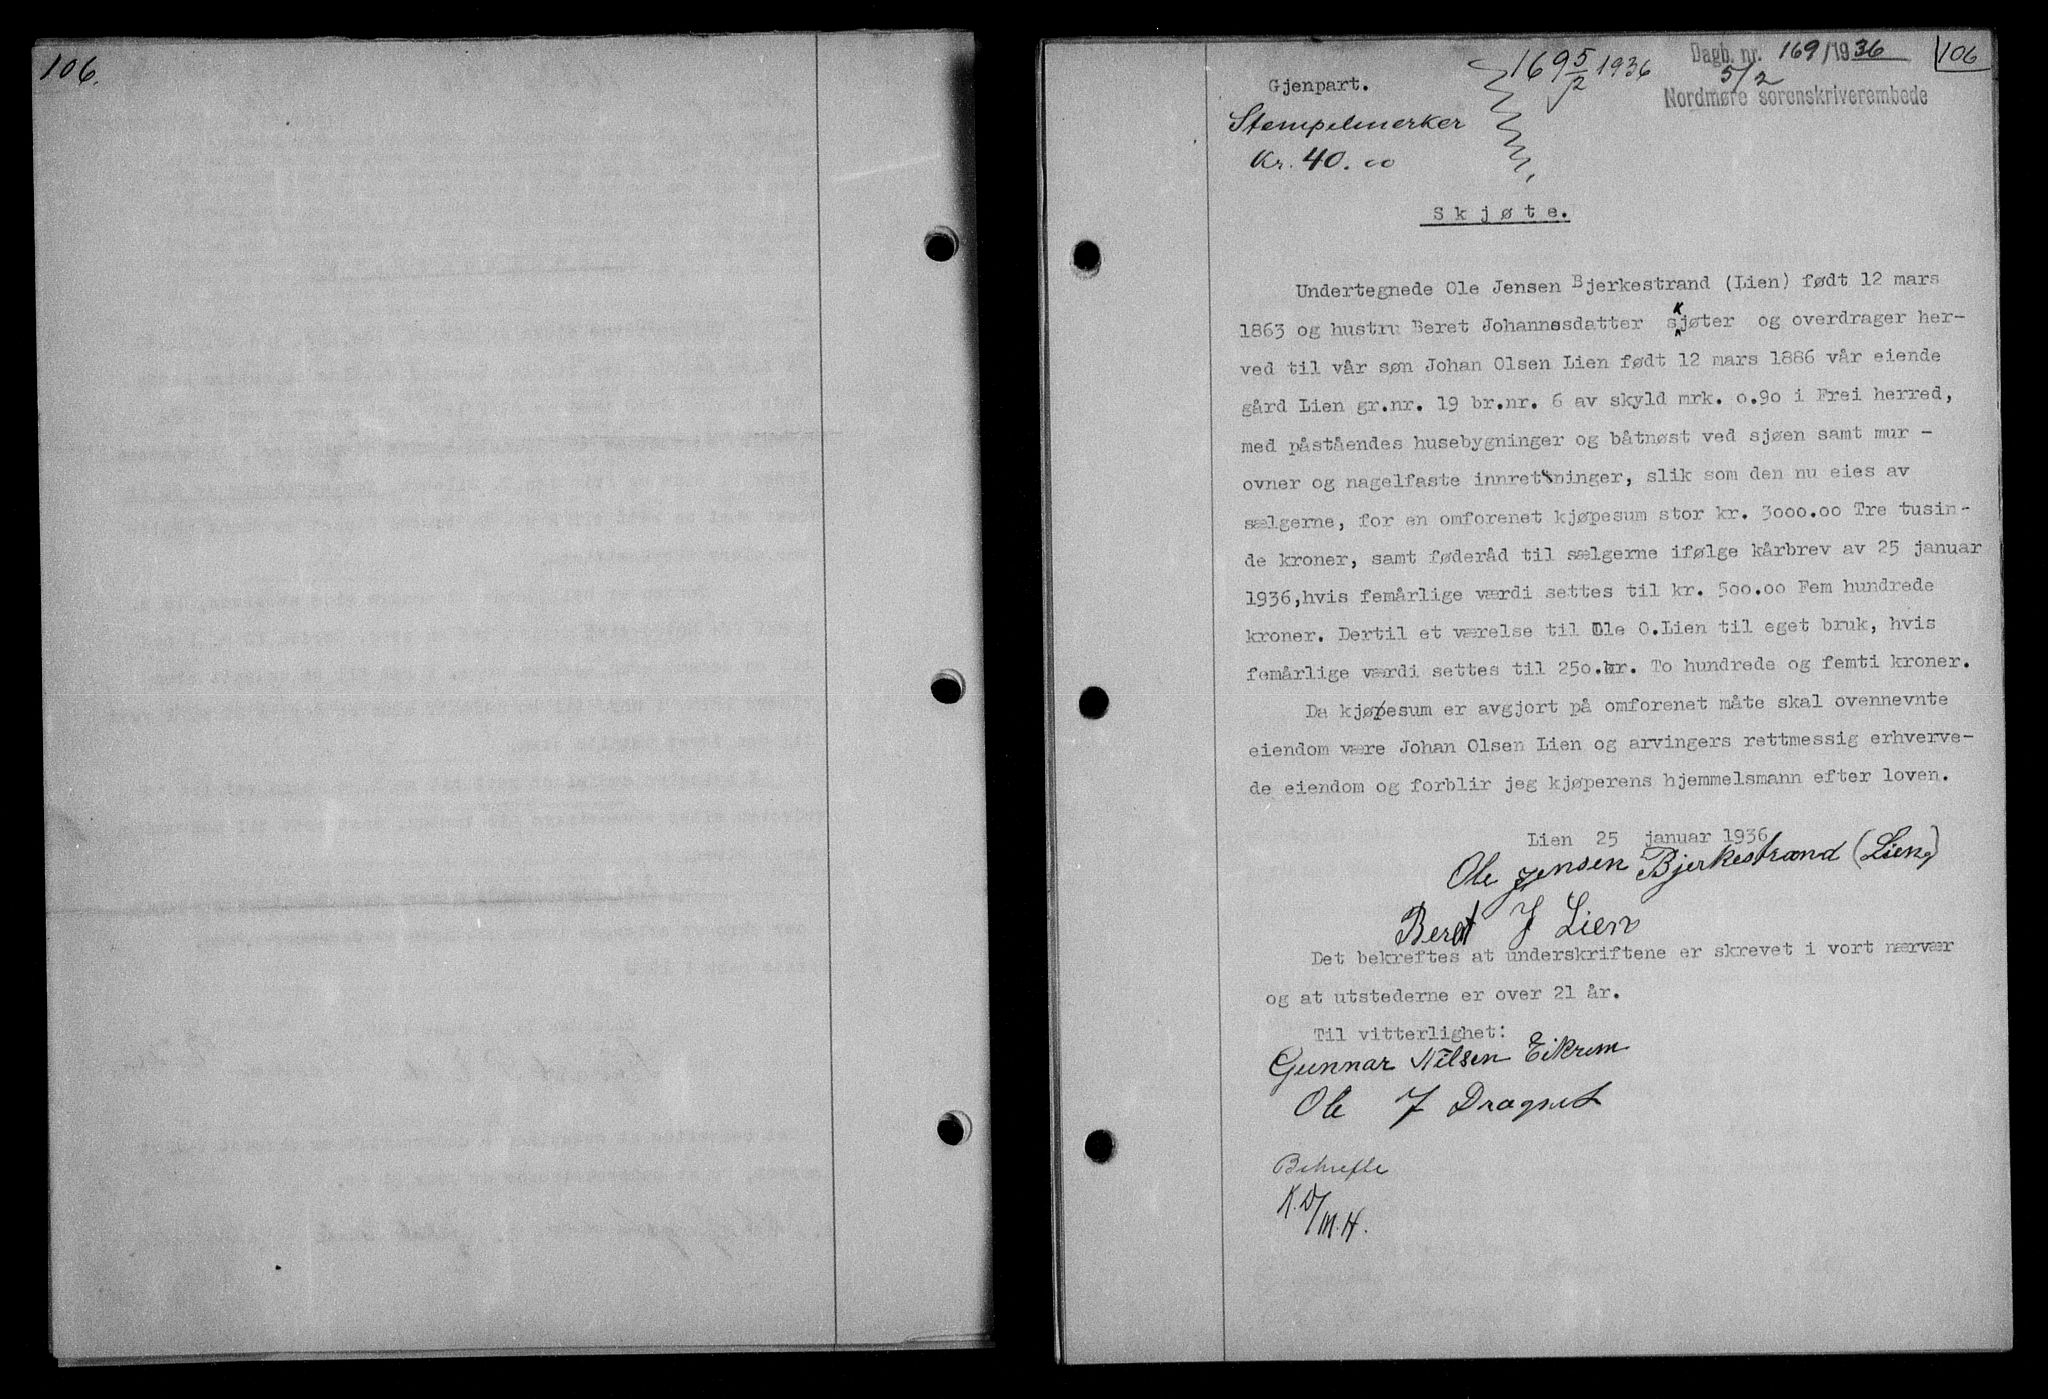 106.
169 5/2 1936
Dagb. nr. 169/1936
5/2
Nordmøre sorenskriverembede
106
Gjenpart.
Stempelmerker
Kr. 40.00
Skjøte.
Undertegnede Ole Jensen Bjerkestrand (Lien) født 12 mars
1863 og hustru Beret Johannesdatter skjøter og overdrager her-
ved til vår søn Johan Olsen Lien født 12 mars 1886 vår eiende
gård Lien gr.nr. 19 br.nr. 6 av skyld mrk. 0.90 i Frei herred,
med påståendes husebygninger og båtnøst ved sjøen samt mur -
ovner og nagelfaste innretninger, slik som den nu eies av
sælgerne, for en omforenet kjøpesum stor kr. 3000.00 Tre tusin-
de kroner, samt føderåd til sælgerne ifølge kårbrev av 25 januar
1936,hvis femårlige værdi settes til kr. 500.00 Fem hundrede
kroner. Dertil et værelse til Ole O.Lien til eget bruk, hvis
femårlige værdi settes til 250.kr. To hundrede og femti kroner.
Da kjøpesum er avgjort på omforenet måte skal ovennevnte
eiendom være Johan Olsen Lien og arvingers rettmessig erhverve-
de eiendom og forblir jeg kjøperens hjemmelsmann efter loven.
Lien 25 januar 1936
Ole Jensen Bjerkestrand (Lien)
Beret J Lien
Det bekreftes at underskriftene er skrevet i vort nærvær
og at utstederne er over 21 år.
Til vitterlighet:
Gunnar Nilsen Eikrem
Ole J Dragset
Bekrefte
K.D/M.H.